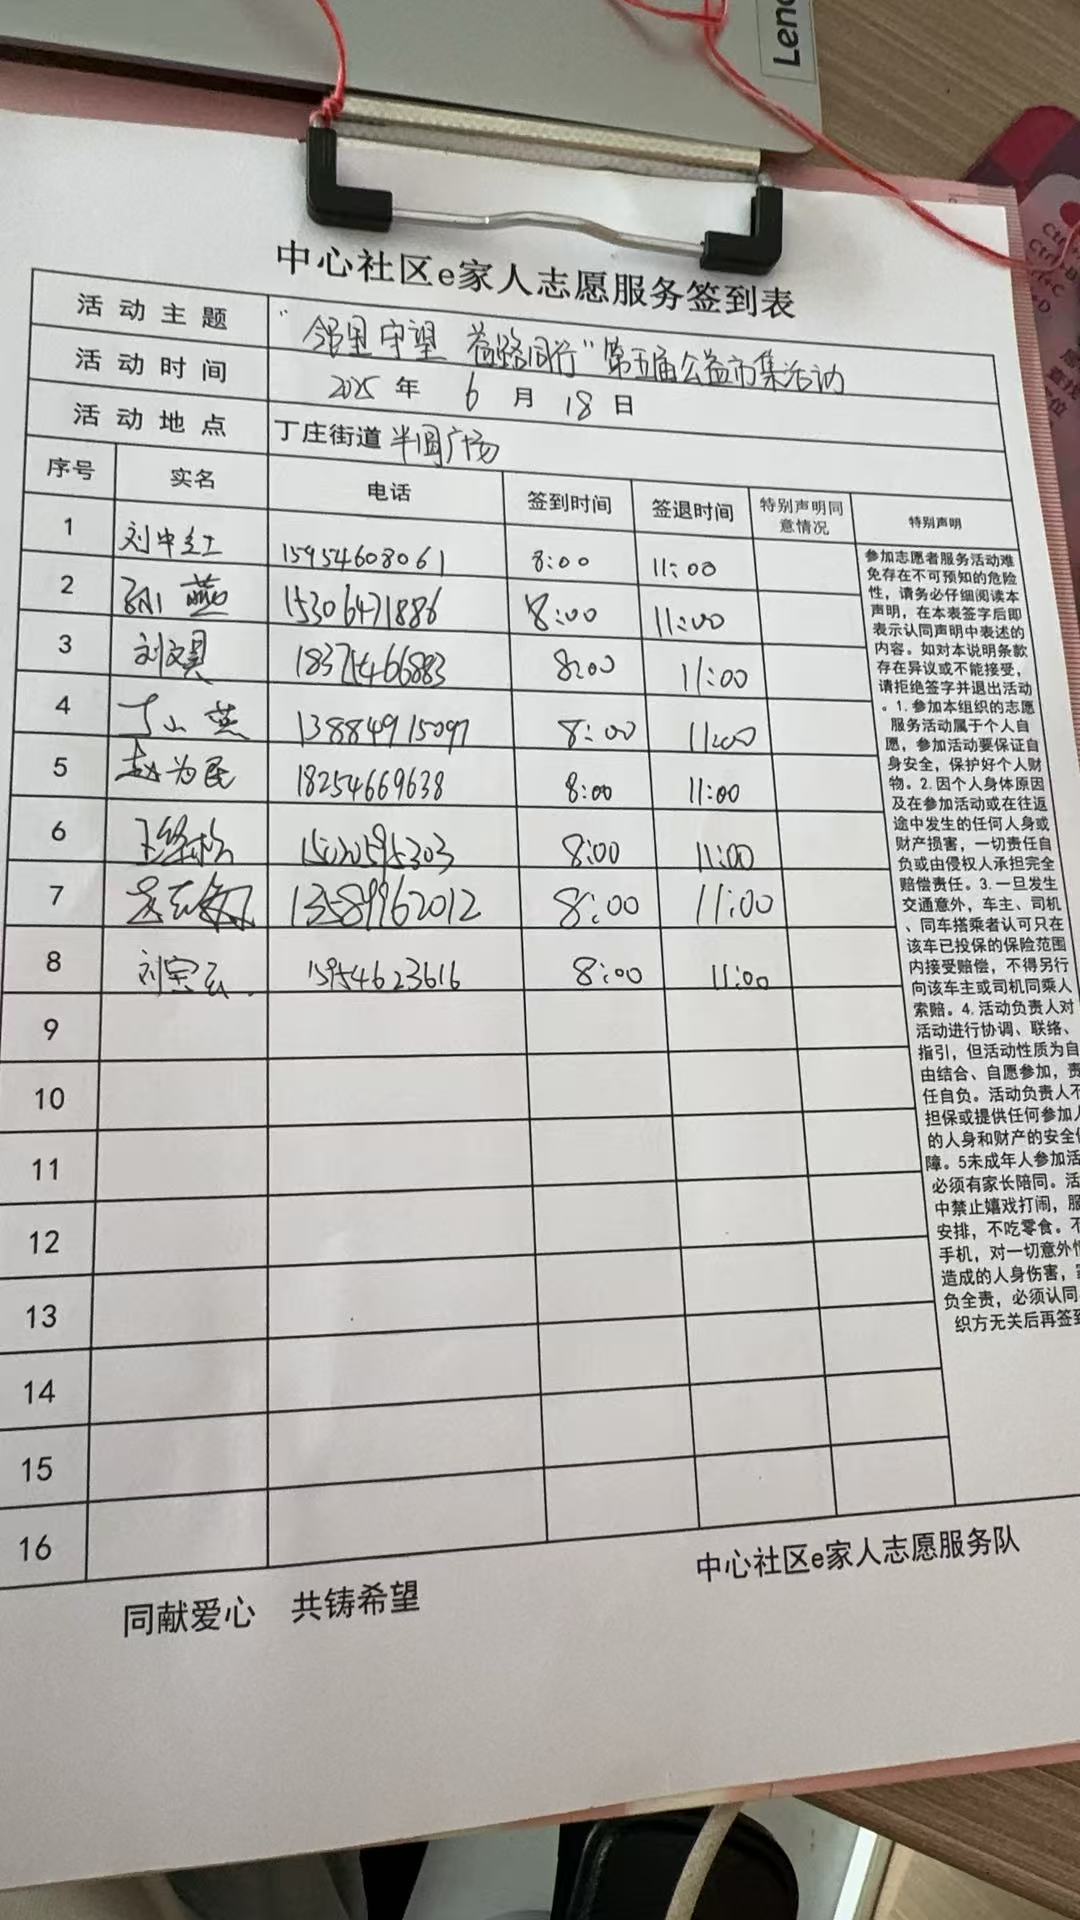 Leno
中心社区e家人志愿服务签到表
活动主题 “邻里守望 益路同行”第五届公益市集活动
活动时间 2025年 6月18日
活动地点 丁庄街道半圆广场
序号 实名 电话 签到时间 签退时间 特别声明同意情况 特别声明
1 刘中红 15954608061 8:00 11:00
2 孙燕 15306471886 8:00 11:00
3 刘文昊 18375466883 8:00 11:00
4 丁山燕 13884915097 8:00 11:00
5 赵为民 18254669638 8:00 11:00
6 8:00 11:00
7 13589962012 8:00 11:00
8 刘宝云 15954623616 8:00 11:00
9
10
11
12
13
14
15
16
参加志愿者服务活动难
免存在不可预知的危险
性，请务必仔细阅读本
声明，在本表签字后即
表示认同声明中表述的
内容。如对本说明条款
存在异议或不能接受，
请拒绝签字并退出活动
。1.参加本组织的志愿
服务活动属于个人自
愿，参加活动要保证自
身安全，保护好个人财
物。2.因个人身体原因
及在参加活动或在往返
途中发生的任何人身或
财产损害，一切责任自
负或由侵权人承担完全
赔偿责任。3.一旦发生
交通意外，车主、司机
、同车搭乘者认可只在
该车已投保的保险范围
内接受赔偿，不得另行
向该车主或司机同乘人
索赔。4.活动负责人对
活动进行协调、联络、
指引，但活动性质为自
由结合、自愿参加，责
任自负。活动负责人不
担保或提供任何参加人
的人身和财产的安全
障。5未成年人参加活
必须有家长陪同。活
中禁止嬉戏打闹，服
安排，不吃零食。不
手机，对一切意外
造成的人身伤害，
负全责，必须认同
织方无关后再签到
同献爱心 共铸希望
中心社区e家人志愿服务队